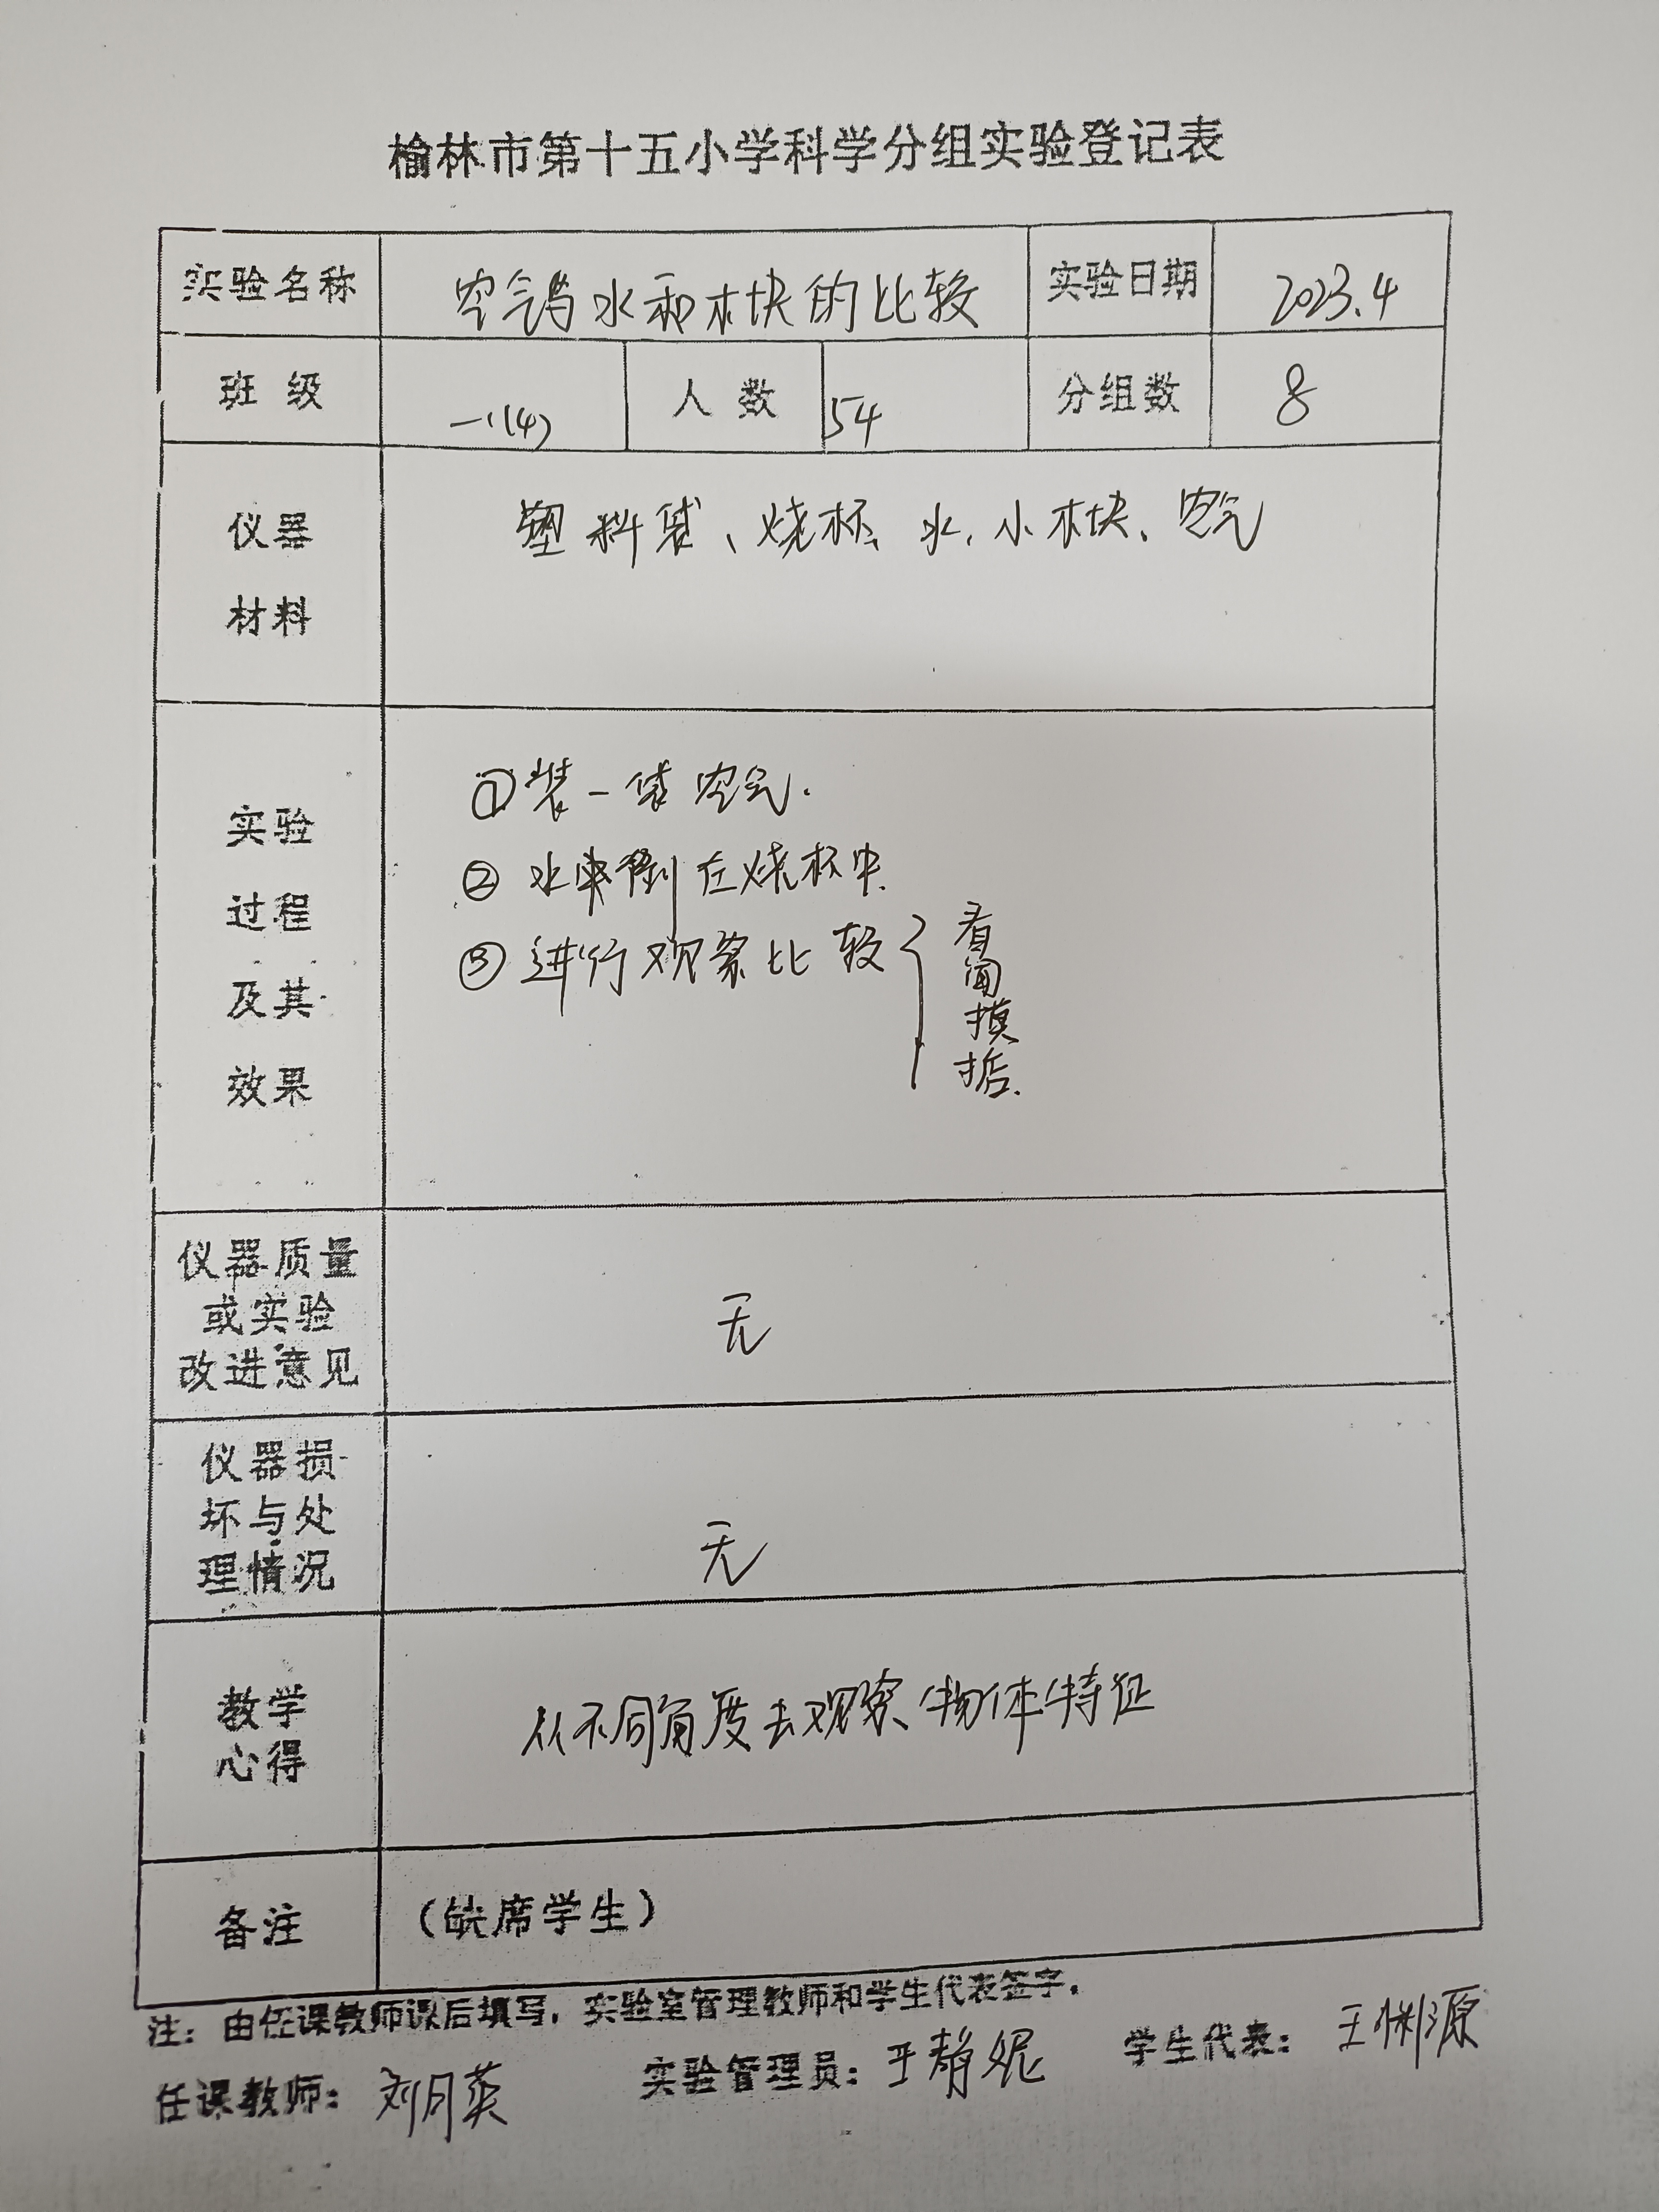 榆林市第十五小学科学分组实验登记表
实验名称 空气与水和木块的比较 实验日期 2023.4
班级 一(4) 人数 54 分组数 8
仪器
材料
塑料袋、烧杯、水、小木块、空气
实验
过程
及其
效果
①装一袋空气.
②水倒在烧杯中
③进行观察比较
看
闻
摸
掂.
仪器质量
或实验
改进意见
无
仪器损
坏与处
理情况
无
教学
心得
从不同角度去观察物体特征
备注 (缺席学生)
注：由任课教师课后填写，实验室管理教师和学生代表签字。
任课教师：刘月英 实验管理员：于静妮 学生代表：王渊源